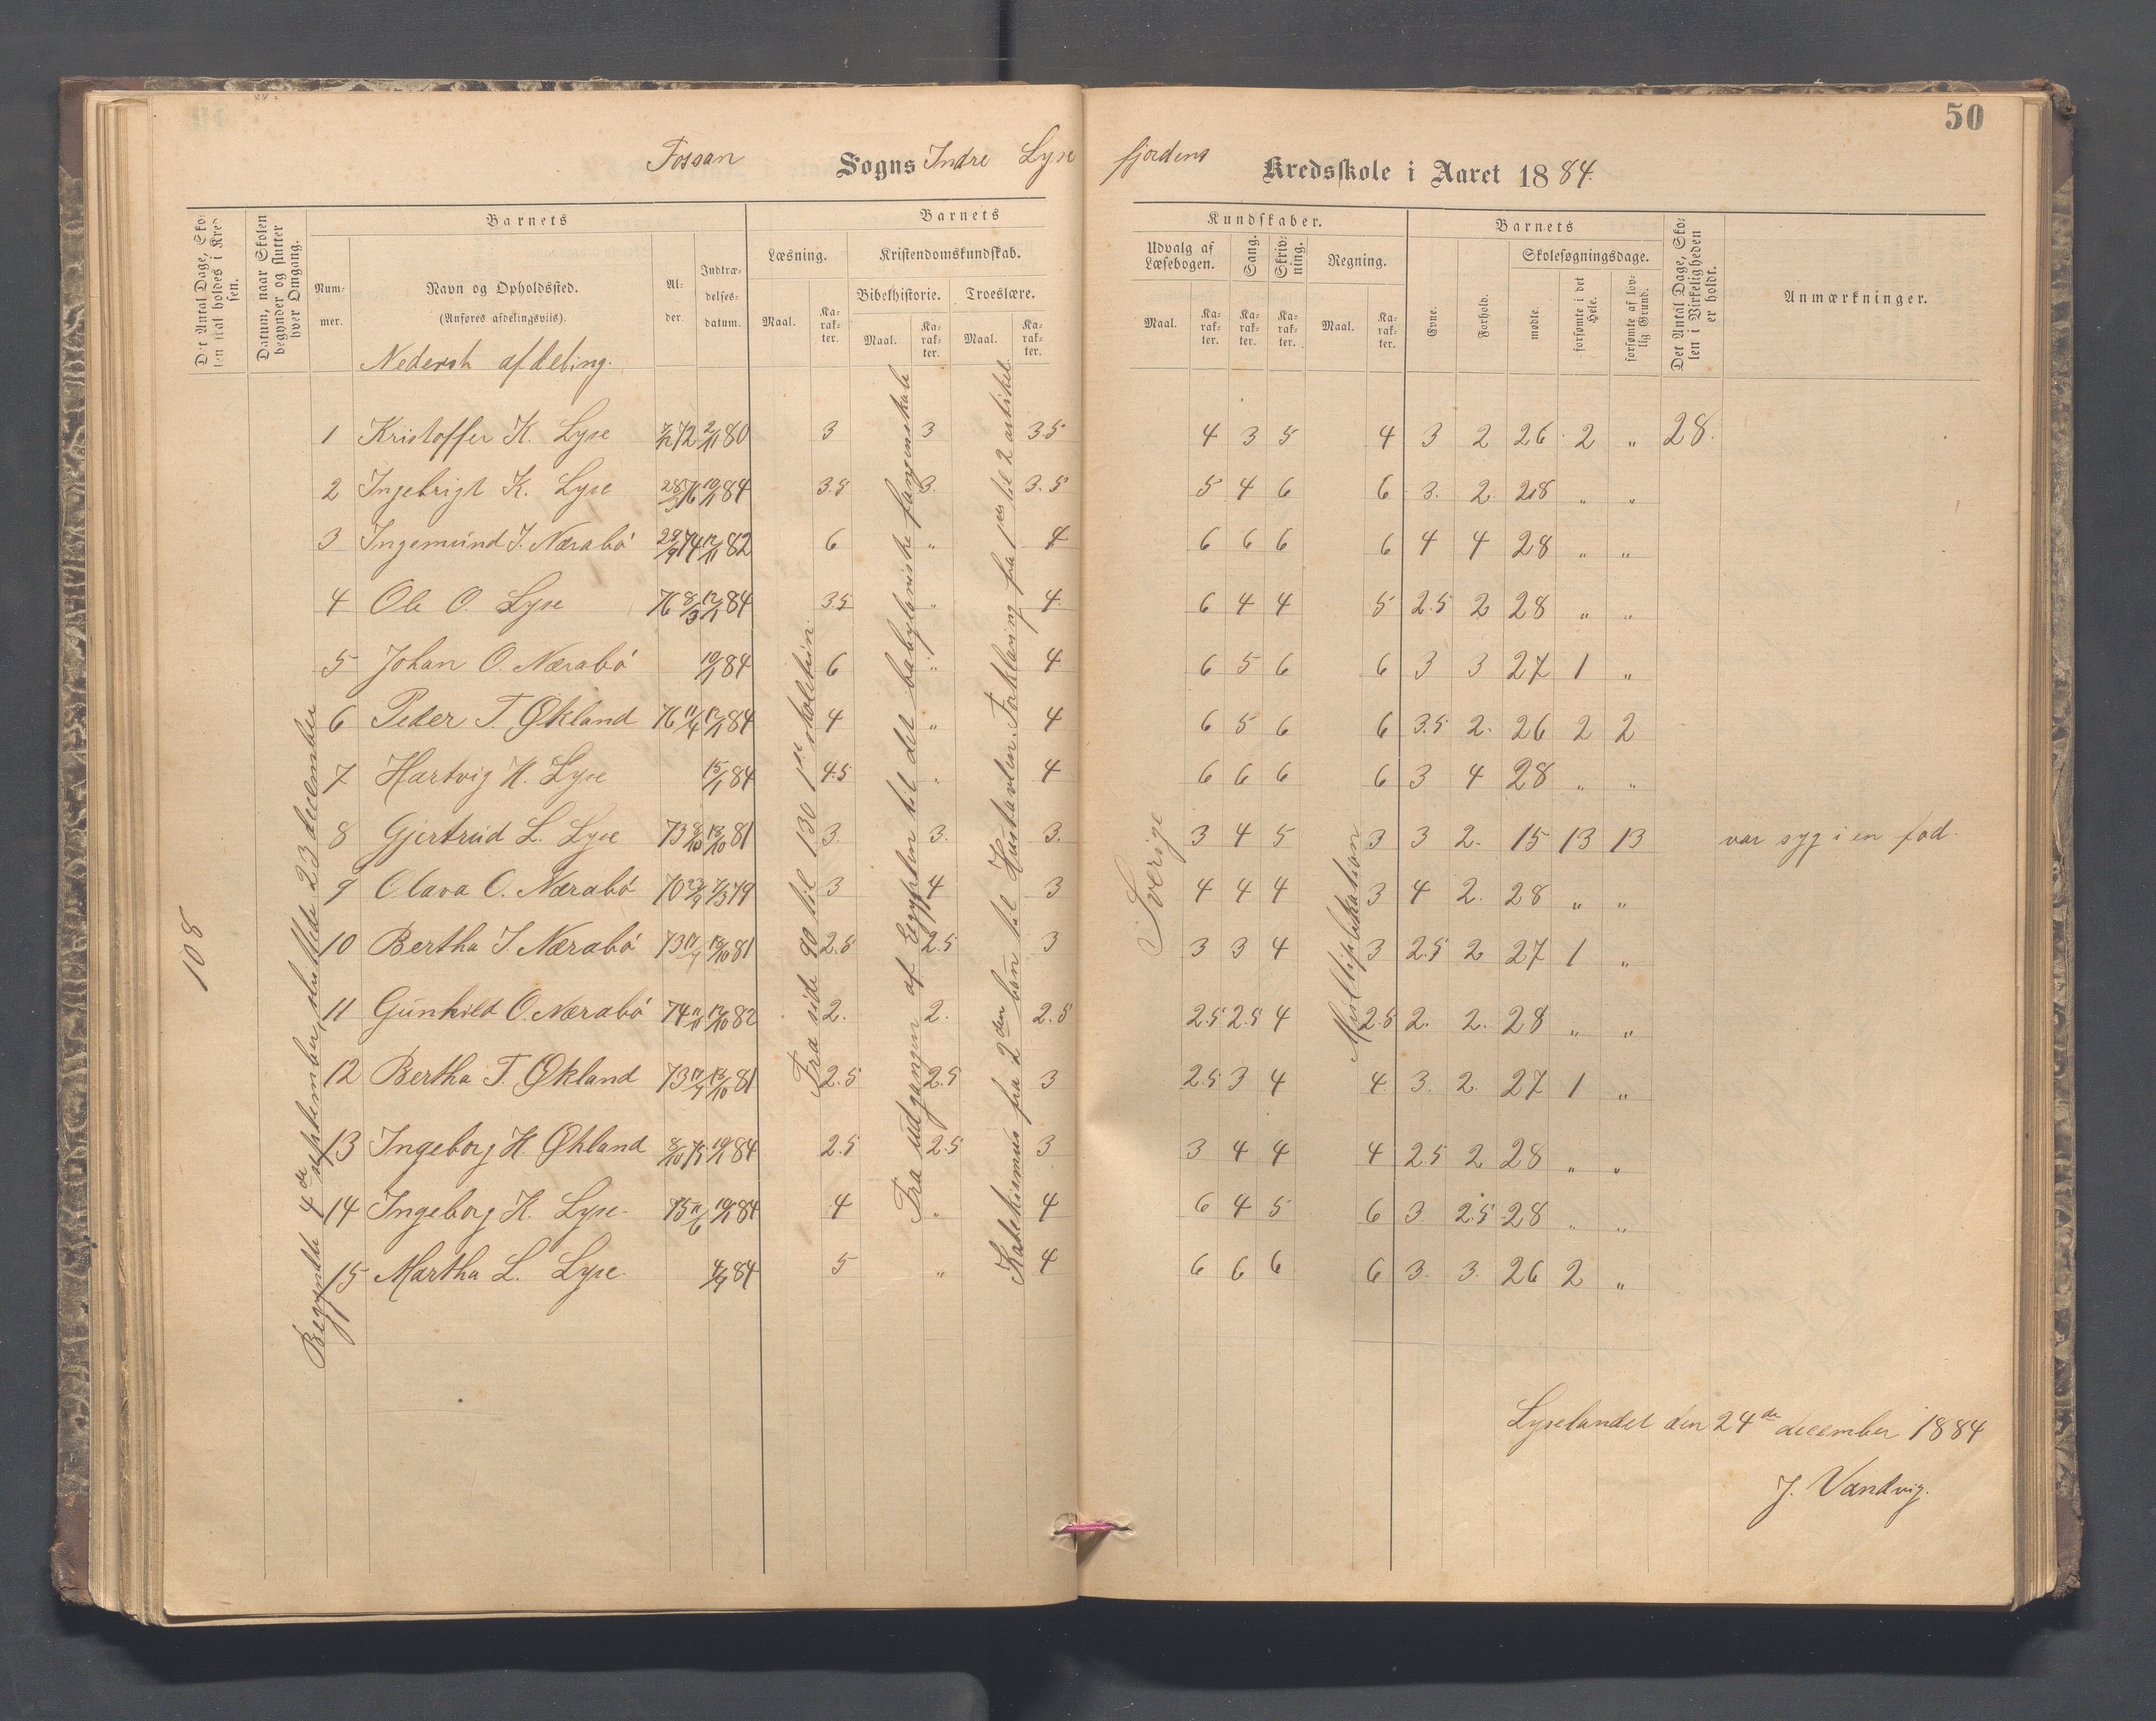 50
Fossan Sogns Indre Lyse fjordens Kredsskole i Aaret 1884.
Det Antal Dage, Skolen skal holdes i Kredsen.
Datum, naar Skolen begynder og slutter hver Omgang.
Barnets
Nummer.
Navn og Opholdssted.
(Anføres afdelingsviis).
Alder.
Indtrædelsesdatum.
Barnets
Læsning.
Maal.
Karakter.
Kristendomskundskab.
Bibelhistorie.
Maal.
Karakter.
Troeslære.
Maal.
Karakter.
Kundskaber.
Udvalg af Læsebogen.
Maal.
Karakter.
Sang.
Karakter.
Skrivning.
Karakter.
Regning.
Maal.
Karakter.
Barnets
Evne.
Forhold.
Skolesøgningsdage.
mødte.
forsømte i det Hele.
forsømte af lovlig Grund.
Det Antal Dage, Skolen i Virkeligheden er holdt.
Anmærkninger.
108
Begyndte 4de september, sluttede 23 december
Fra side 90 til 130 1ste skoletrin.
Fra udgangen af Egypten til det babyloniske fangenskab
Katekismus fra 2den bøn til Hustavlen. Forklaring fra 1ste til 2 artikel
Sverige
Multiplikation
Nederste afdeling.
1 Kristoffer K. Lyse 72 2/11 80 3 3 3.5 4 3 5 4 3 2 26 2 " 28.
2 Ingebrigt K. Lyse 84 3.5 3. 3.5 5 4 6 6 3. 2. 28 " "
3 Ingemund J. Nærabø 28/9 74 82 6 " 4 6 6 6 6 4 4 28 " "
4 Ole O. Lyse 76 8/3 84 3.5 " 4. 6 4 4 5 2.5 2 28 " "
5 Johan O. Nærabø 84 6 " 4 6 5 6 6 3 3 27 1 "
6 Peder T. Økland 76 84 4 " 4 6 5 6 6 3.5 2. 26 2 2
7 Hartvig H. Lyse 84 4.5 " 4 6 6 6 6 3 4 28 " "
8 Gjertrud L. Lyse 73 81 3. 3. 3. 3 4 5 3 3 2. 15 13 13 var syg i en fod.
9 Olava O. Nærabø 70 79 3 4 3 4 4 4 3 4 2. 28 " "
10 Bertha J. Nærabø 73 81 2.5 2.5 3 3 3 4 3 2.5 2 27 1 "
11 Gunhild O. Nærabø 74 82 2. 2. 2.5 2.5 2.5 4 2.5 2. 2. 28 " "
12 Bertha T. Økland 73 81 2.5 2.5 3 2.5 3 4 4 3. 2. 27 1 "
13 Ingeborg H. Økland 8/10 75 84 2.5 2.5 3 3 4 4 4 2.5 2 28 " "
14 Ingeborg K. Lyse 75 84 4 " 4 6 4 5 6 3 2.5 28 " "
15 Martha L. Lyse. 4/9 84 5 " 4 6 6 6 6 3. 3. 26 2 "
Lyselandet den 24de december 1884
J. Vandvig.